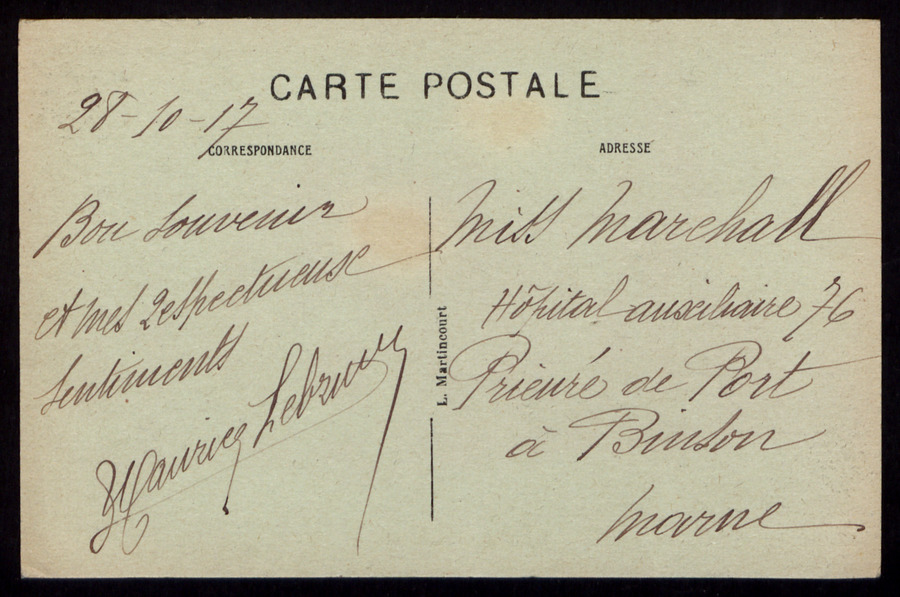 CARTE POSTALE
28-10-17
CORRESPONDANCE
Bon Souvenir
et mes Respectueuse
Sentiments
Maurice Lebrun
ADRESSE
Miss Marchall
Hôpital auxiliaire 76
Prieuré de Port
à Binson
Marne
L. Martincourt